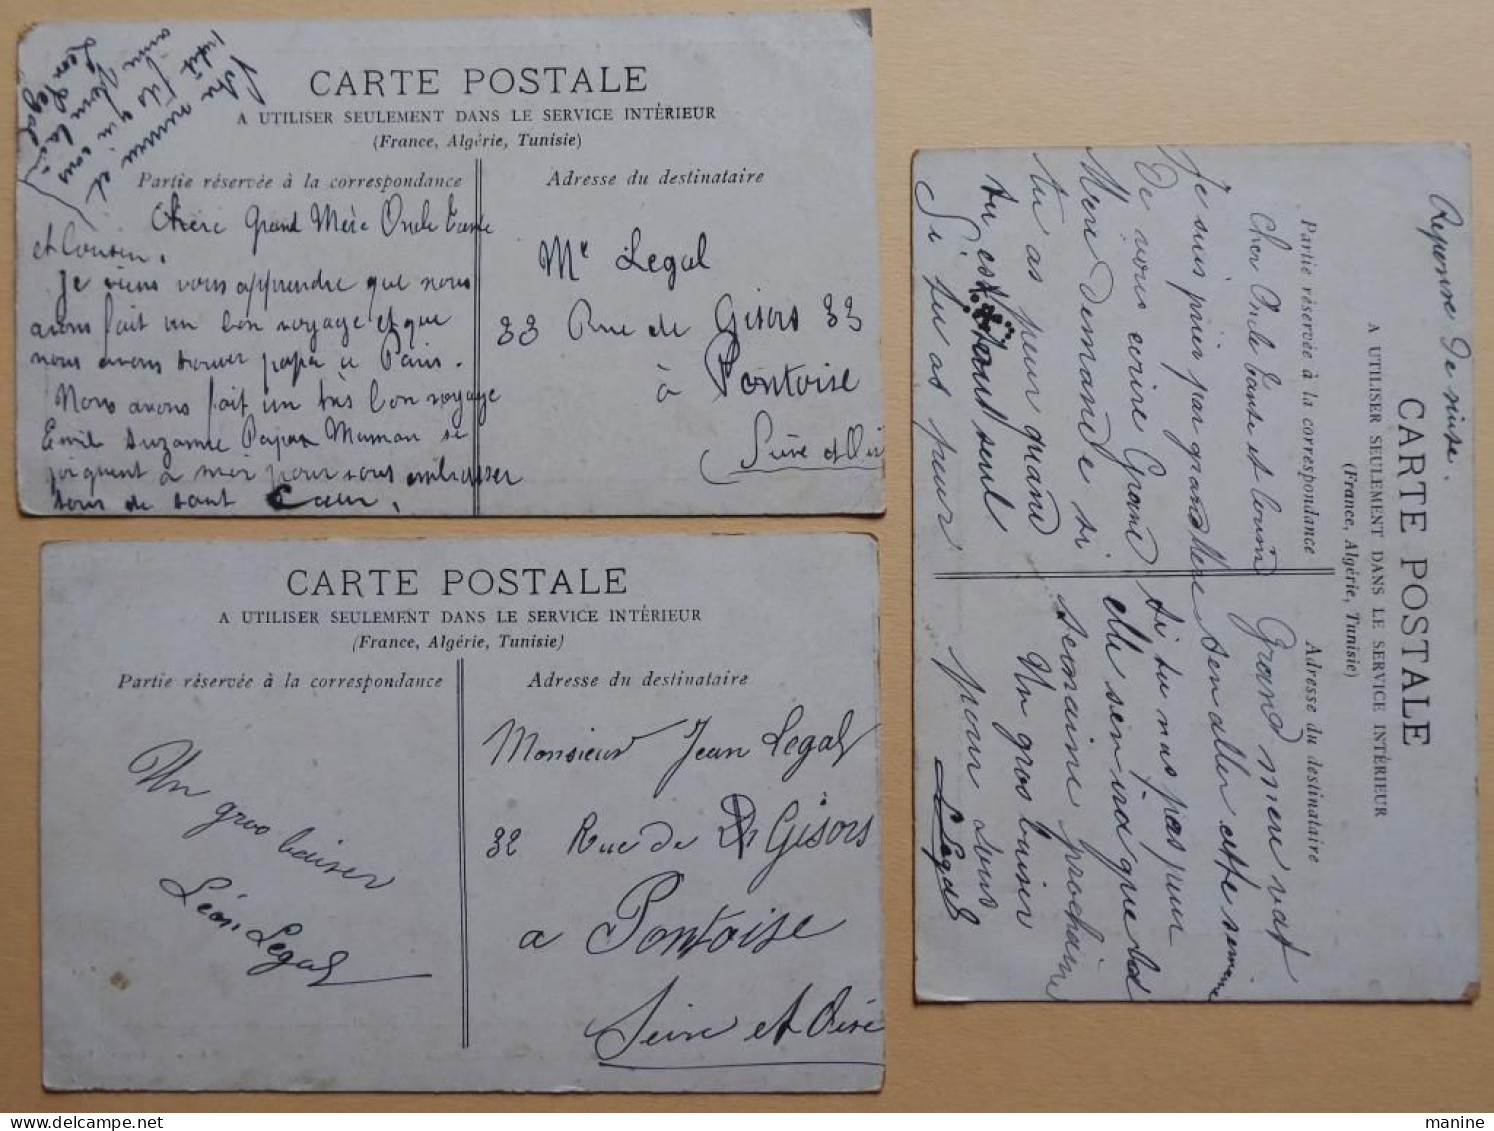 CARTE POSTALE
A UTILISER SEULEMENT DANS LE SERVICE INTÉRIEUR
(France, Algérie, Tunisie)
Partie réservée à la correspondance
Adresse du destinataire
Votre neveu et
petit fils qui vous
aime
Léon Legal
Chère Grand Mère Oncle Tante
et Cousin.
Je viens vous apprendre que nous
avons fait un bon voyage et que
nous avons trouver papa a Paris.
Nous avons fait un très bon voyage
Emile Suzanne Papa Maman se
joignent a moi pour vous embrasser
tous de tout Cœur.
Mr Legal
33 Rue de Gisors 33
à Pontoise
Seine et Oise
CARTE POSTALE
A UTILISER SEULEMENT DANS LE SERVICE INTÉRIEUR
(France, Algérie, Tunisie)
Partie réservée à la correspondance
Adresse du destinataire
Un gros baiser
Léon Legal
Monsieur Jean Legal
32 Rue de Gisors
a Pontoise
Seine et Oise
CARTE POSTALE
A UTILISER SEULEMENT DANS LE SERVICE INTÉRIEUR
(France, Algérie, Tunisie)
Partie réservée à la correspondance
Adresse du destinataire
Reponse De suite.
Cher Oncle tante et Cousin Grand mere vat
Je suis prier par grand Mere s'en aller cette semaine
De vous ecrire Grand si tu n'as pas peur
Mere Demande si elle s'en ira que la
tu as peur quand semaine prochaine
tu est tout seul Un gros baiser
Si tu as peur pour tous
L Legal
manine